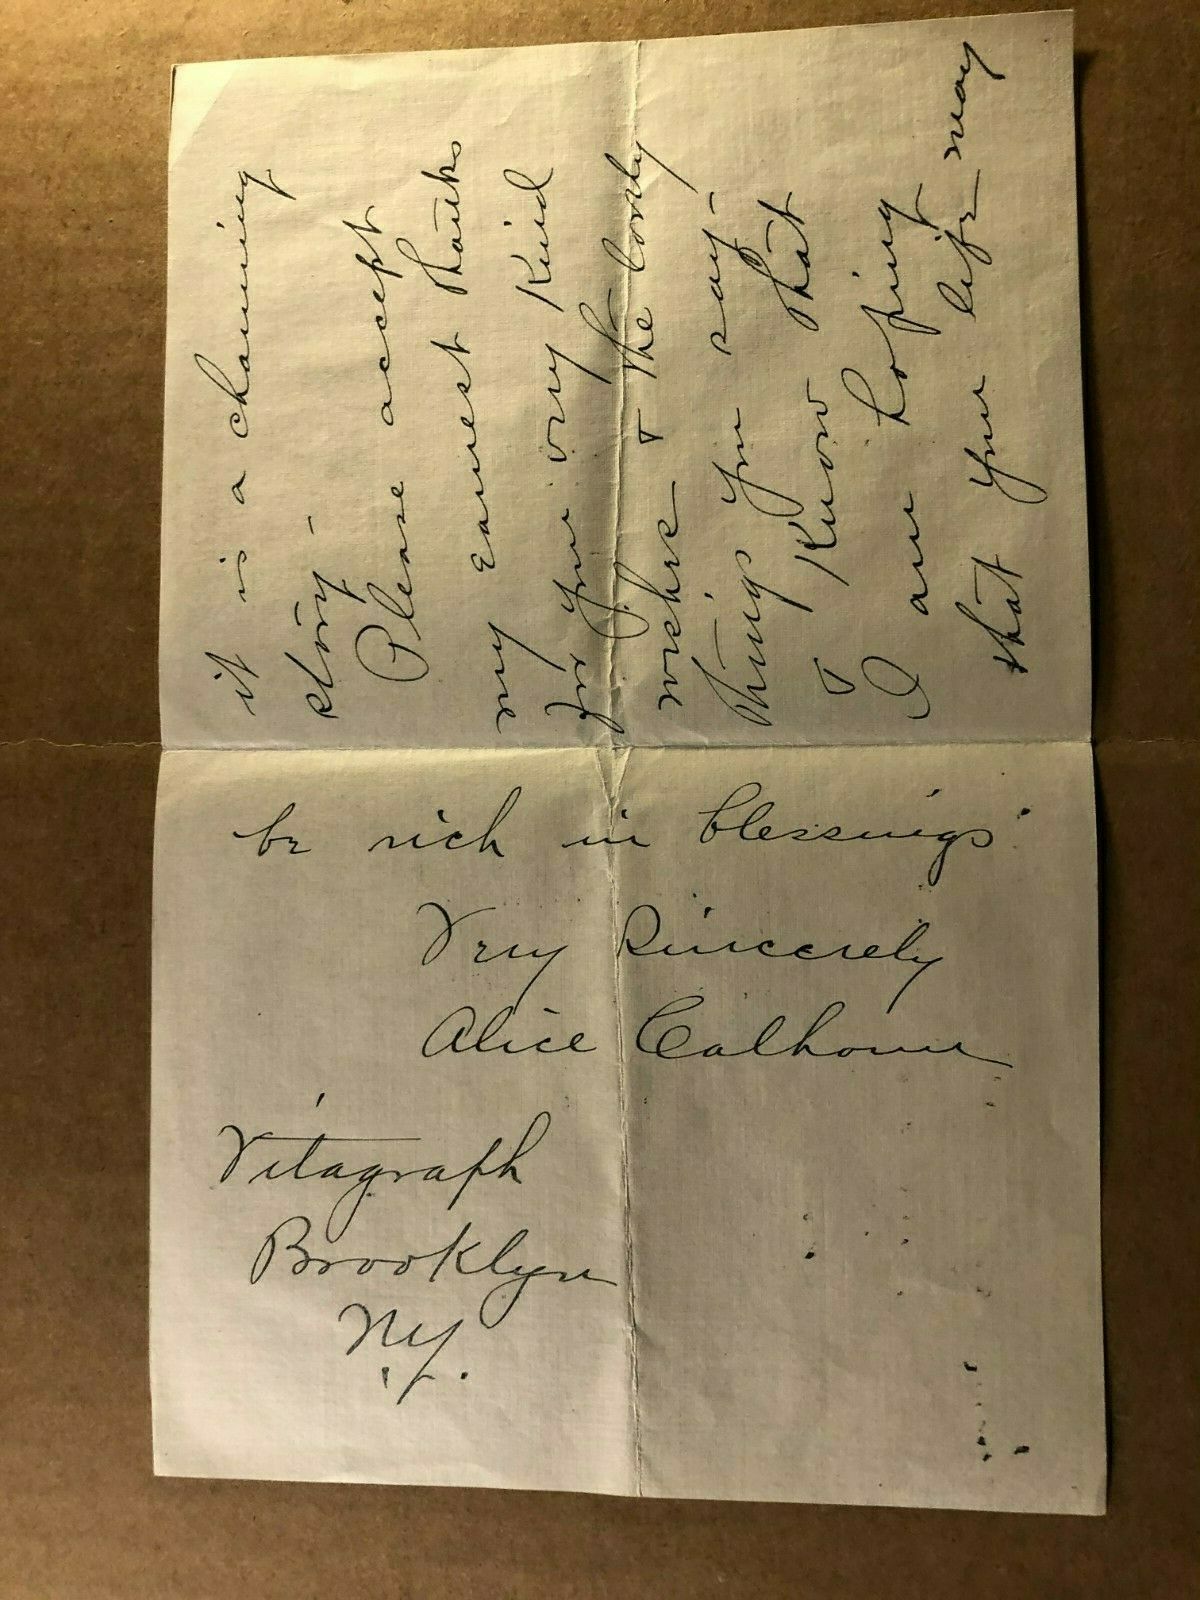 it is a charming
story -
Please accept
my earnest thanks
for your very kind
wishes & the lovely
things you say -
& know that
I am hoping
that your life may
be rich in blessings
Very Sincerely
Alice Calhoun
Vitagraph
Brooklyn
N.Y.